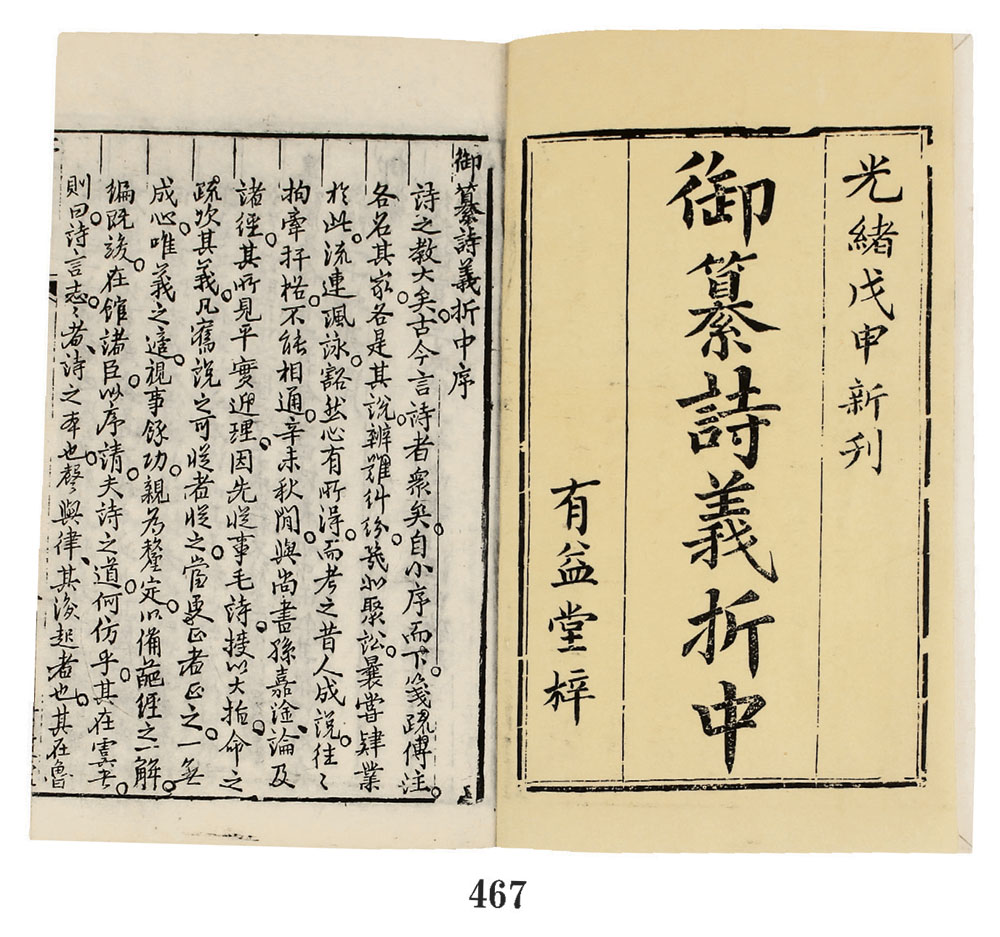 光緒戊申新刊
御纂詩義折中
有益堂梓
御纂詩義折中序
詩之教大矣古今言詩者眾矣自小序而下箋疏傳注
各名其家各是其說辨難糾紛幾如聚訟曩嘗肄業
於此流連諷詠豁然心有所得而考之昔人成說往〻
拘牽扞格不能相通辛未秋閒與尚書孫嘉淦論及
諸經其所見平實近理因先從事毛詩授以大指命之
疏次其義凡舊說之可從者從之當更正者正之一無
成心唯義之適視事餘功親為釐定以備葩經之一解
編既竣在館諸臣以序請夫詩之道何仿乎其在虞書
則曰詩言志〻者詩之本也聲與律其後起者也其在魯
467